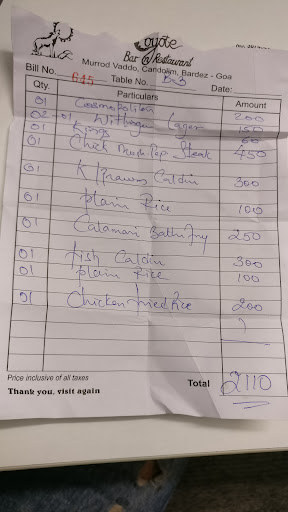 Coyote
Bar @ Restaurant
Murrod Vaddo, Candolim, Bardez - Goa
Bill No. 645 Table No. B3 Date:
Qty. Particulars Amount
01 Cosmopolitan 200
Lager 150
01 Kings 60
01 Chick Steak 450
01 K/Prawns Caldin 300
01 Plain Rice 100
01 Calamari Butter fry 250
01 fish Caldin 300
01 plain Rice 100
01 Chicken fried Rice 200
Price inclusive of all taxes
Total 2110
Thank you, visit again